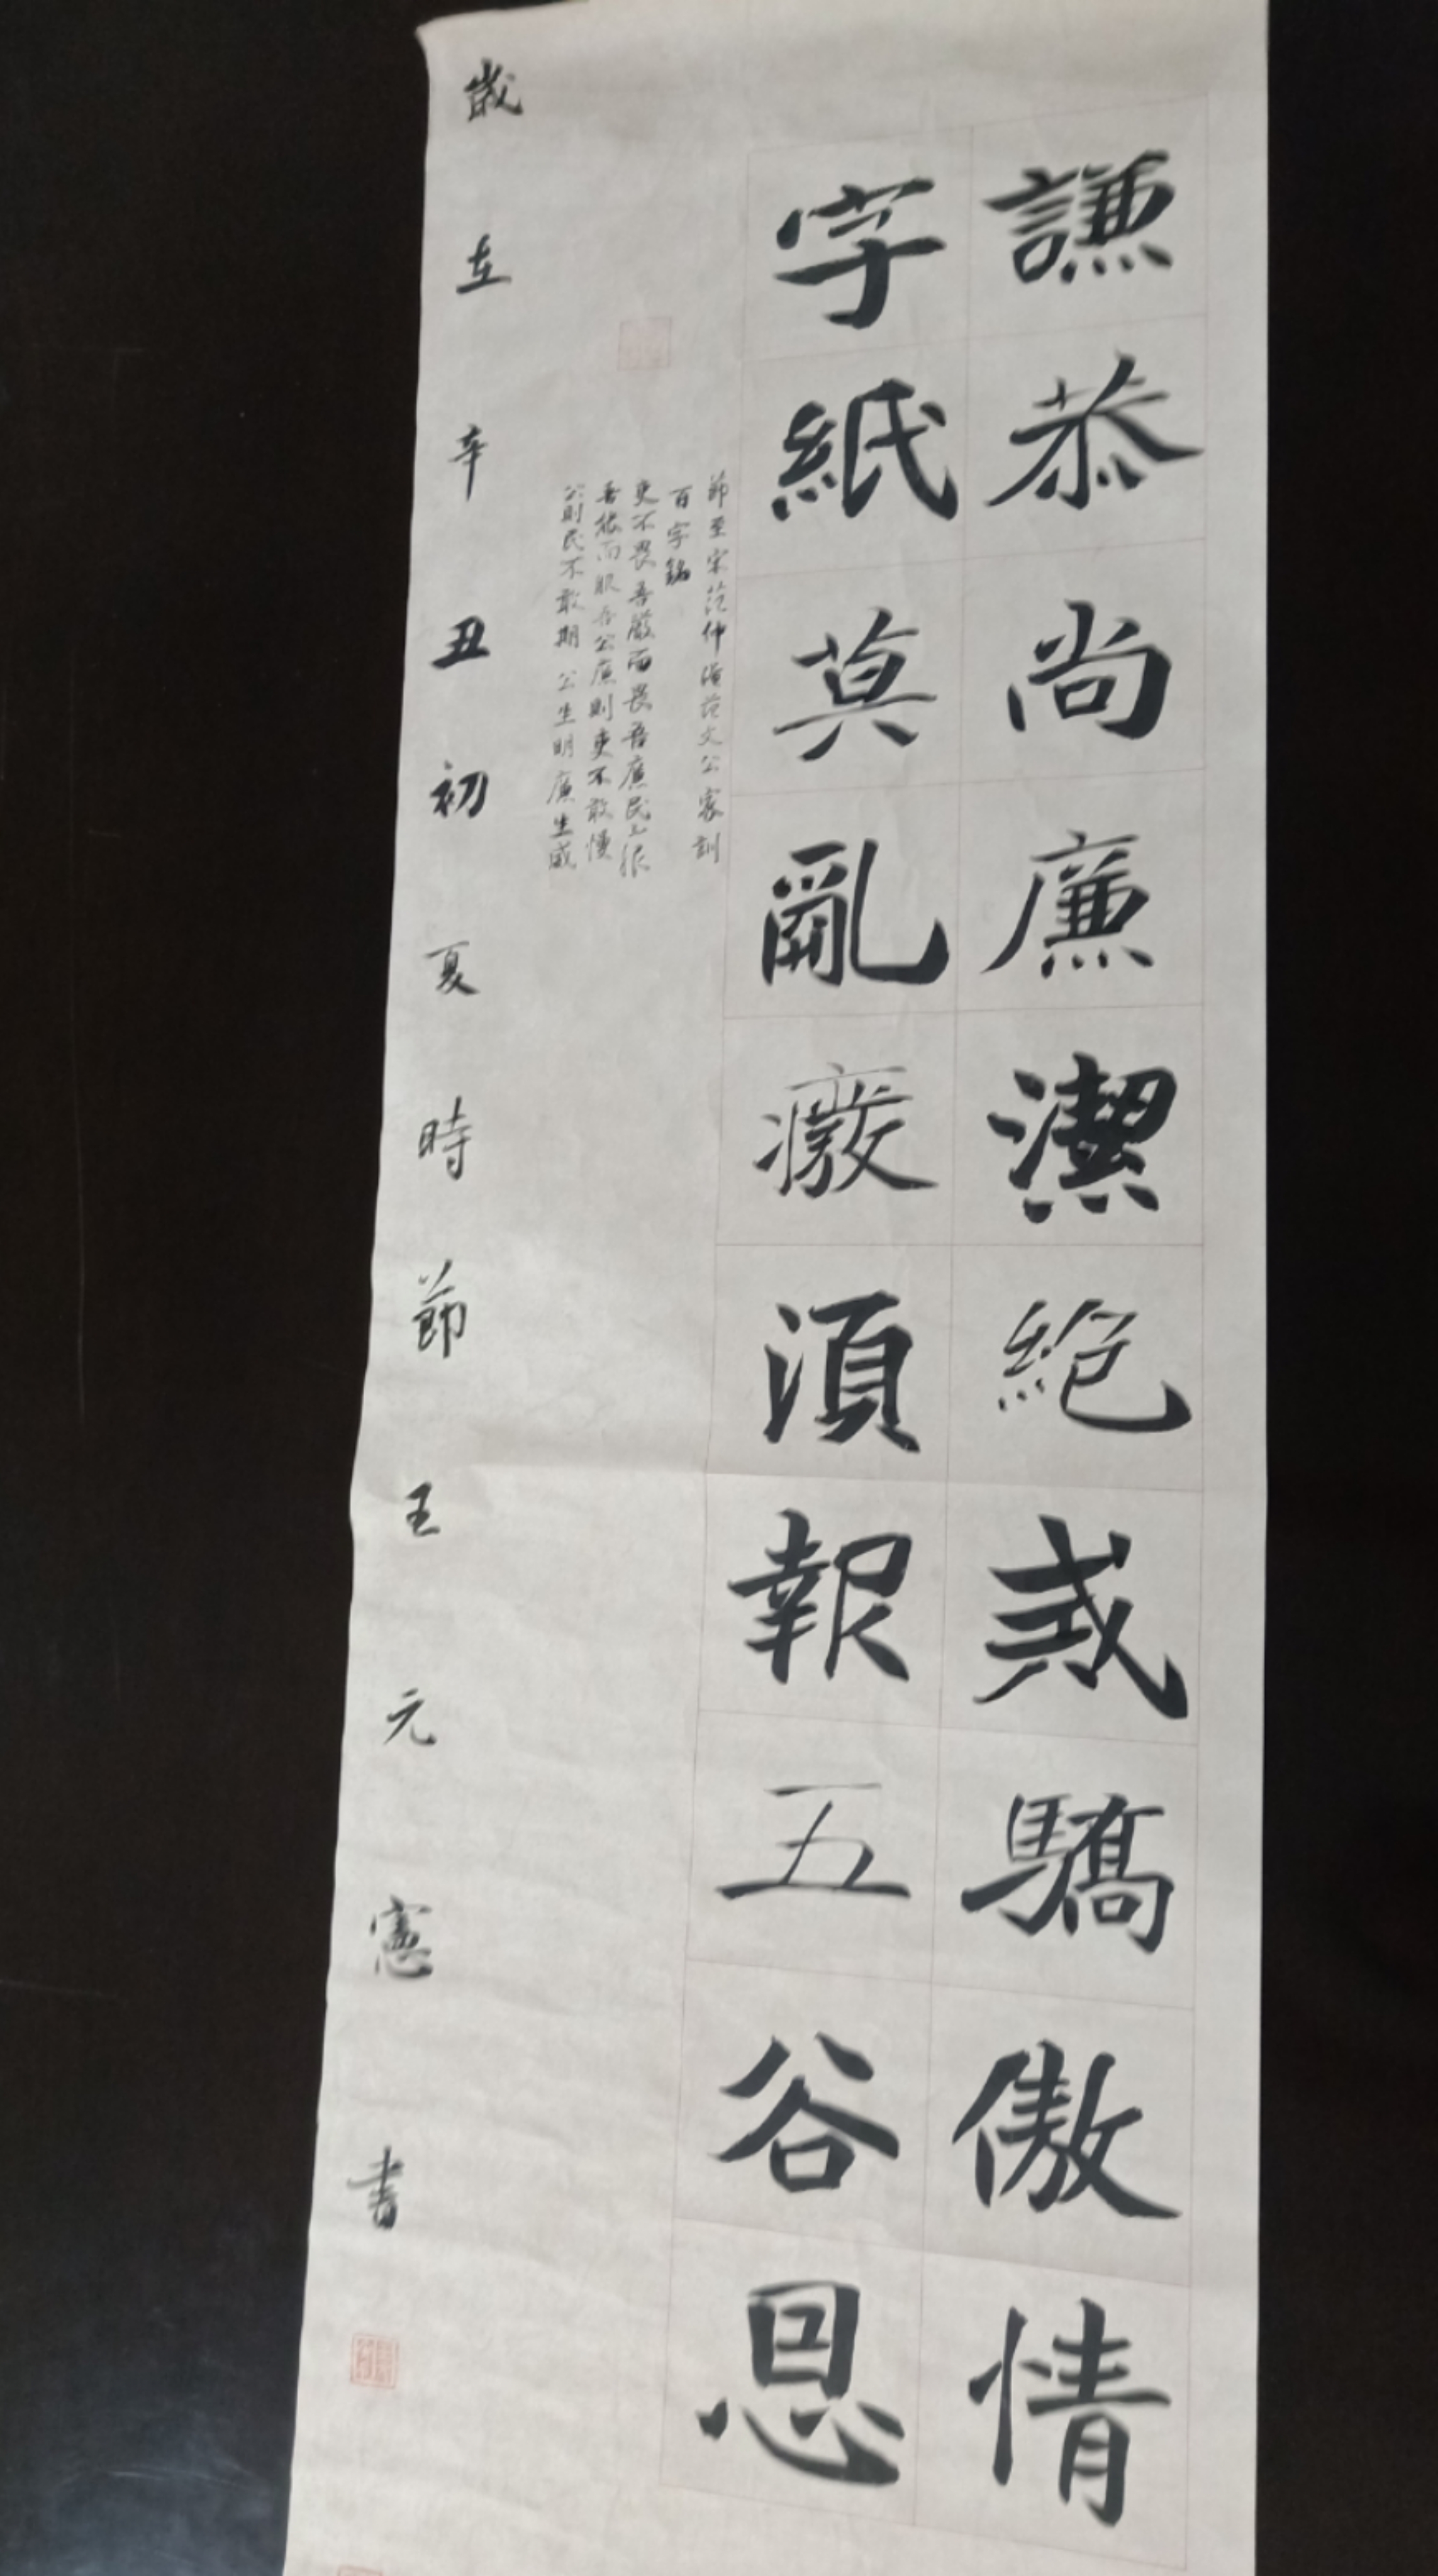 謙恭尚廉潔絶戒驕傲情
字紙莫亂廢須報五谷恩
節至宋范仲淹范文公家訓
百字銘
吏不畏吾嚴而畏吾廉民不服
吾能而服吾公廉則吏不敢慢
公則民不敢期 公生明廉生威
歲在辛丑初夏時節王元憲書